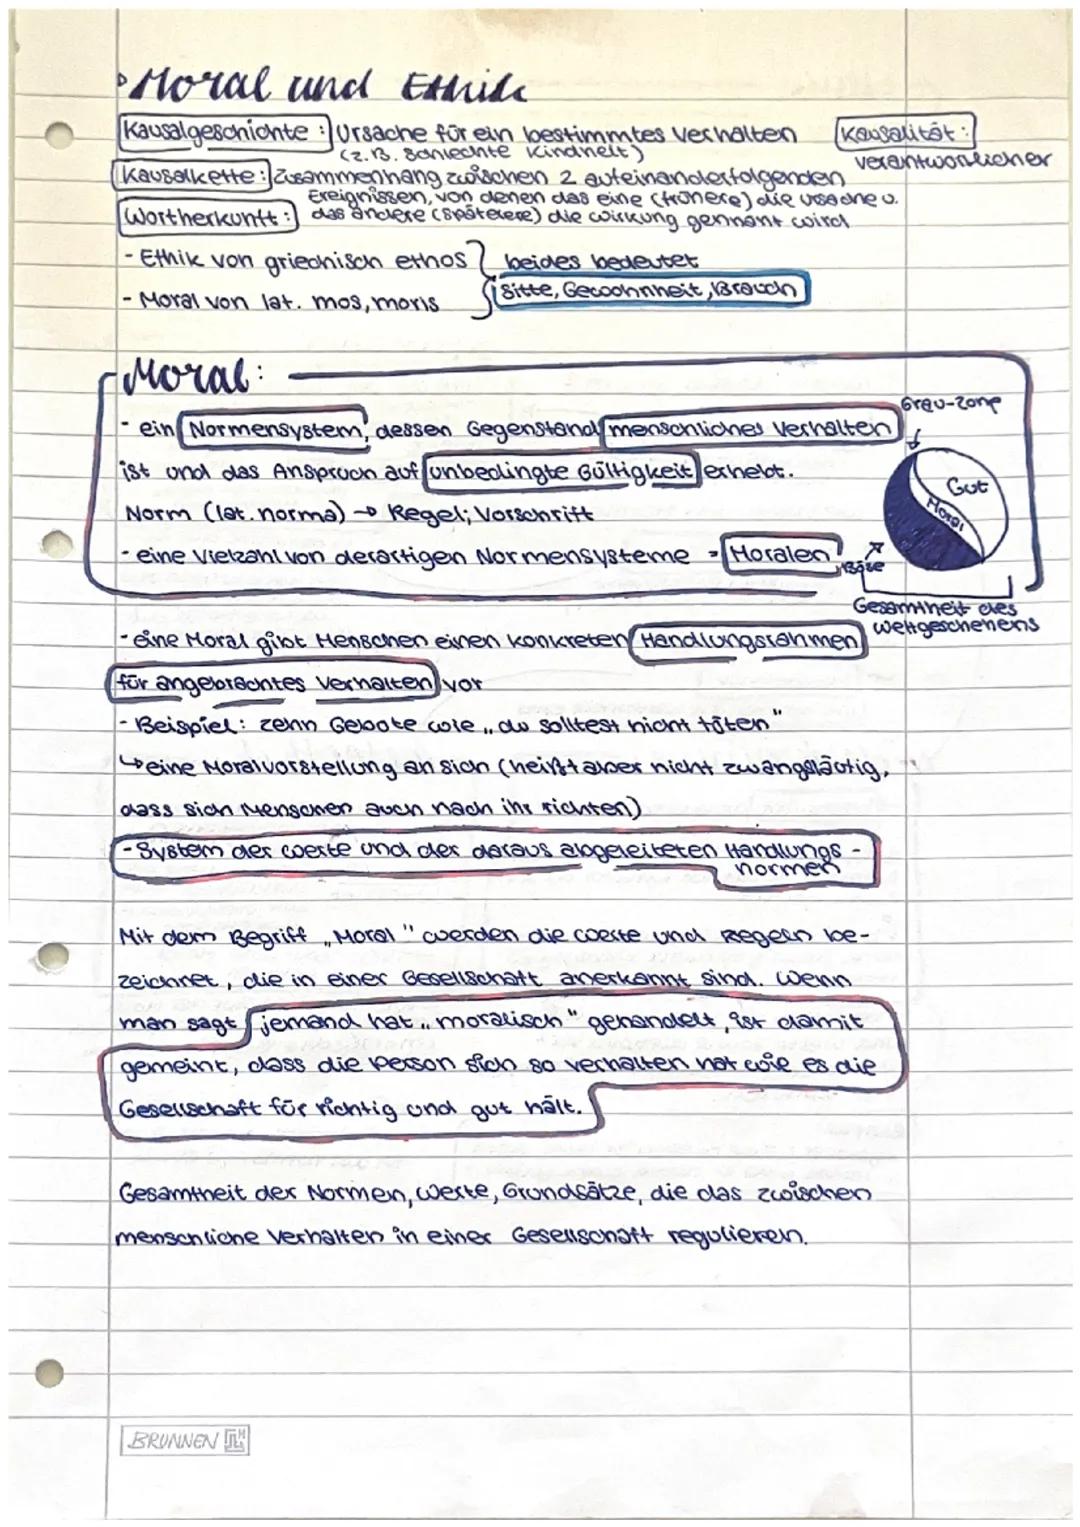 Moral und Ethik
Kausalgeschichte: Ursache für ein bestimmtes Verhalten
(z.B. schlechte Kindheit)
Kausalität:
verantwortlicher
Kausalkette: Zusammenhang zwischen 2 aufeinanderfolgenden
Ereignissen, von denen das eine (frühere) die Ursache u.
das andere (spätere) die Wirkung gennant wird
Wortherkunft:
- Ethik von griechisch ethos
- Moral von lat. mos, moris
beides bedeutet
Sitte, Gewohnheit, Brauch
Moral:
- ein Normensystem, dessen Gegenstand menschliches Verhalten
ist und das Anspruch auf unbedingte Gültigkeit erhebt.
Norm (lat. norma) → Regel; Vorschrift
- eine Vielzahl von derartigen Normensysteme = Moralen
Grau-zone
Gut
Moral
Böse
Gesamtheit des
weltgeschehens
- eine Moral gibt Menschen einen konkreten Handlungsrahmen
für angebrachtes Verhalten vor
- Beispiel: zehn Gebote wie „du solltest nicht töten"
↳ eine Moralvorstellung an sich (heißt aber nicht zwangsläufig,
dass sich Menschen auch nach ihr richten)
- System der Werte und der daraus abgeleiteten Handlungs-
normen
Mit dem Begriff „Moral" werden die Werte und Regeln be-
zeichnet, die in einer Gesellschaft anerkannt sind. Wenn
man sagt jemand hat „moralisch" gehandelt, ist damit
gemeint, dass die Person sich so verhalten hat wie es die
Gesellschaft für richtig und gut hält.
Gesamtheit der Normen, Werte, Grundsätze, die das zwischen
menschliche Verhalten in einer Gesellschaft regulieren.
BRUNNEN